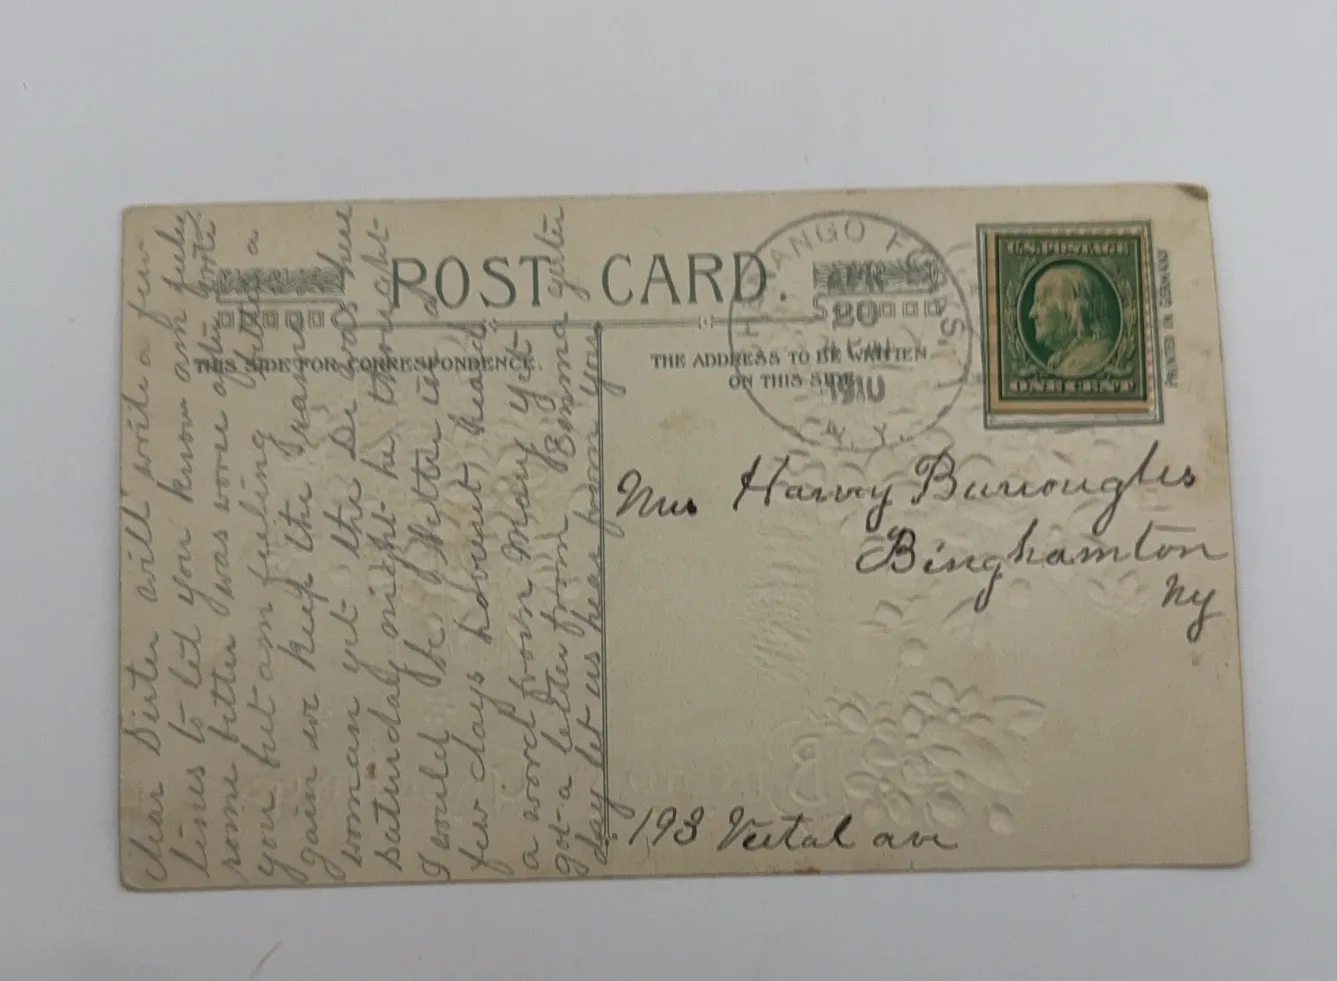 POST CARD.
THIS SIDE FOR CORRESPONDENCE.
THE ADDRESS TO BE WRITTEN
ON THIS SIDE
CHENANGO FORKS,
APR
20
1910
N.Y.
U.S. POSTAGE
ONE CENT
PRINTED IN GERMANY
Mrs Harvey Burroughs
Binghamton
Ny
193 Vestal ave
Dear Sister will write a few
lines to let you know am feeling
some better was worse after you
your but am feeling better a
gain we keep the
woman yet the Dr was here
saturday night he thought
I would be better in a
few days havent heard
a word from Mary yet
got a letter from Emma yester
day let us hear from you